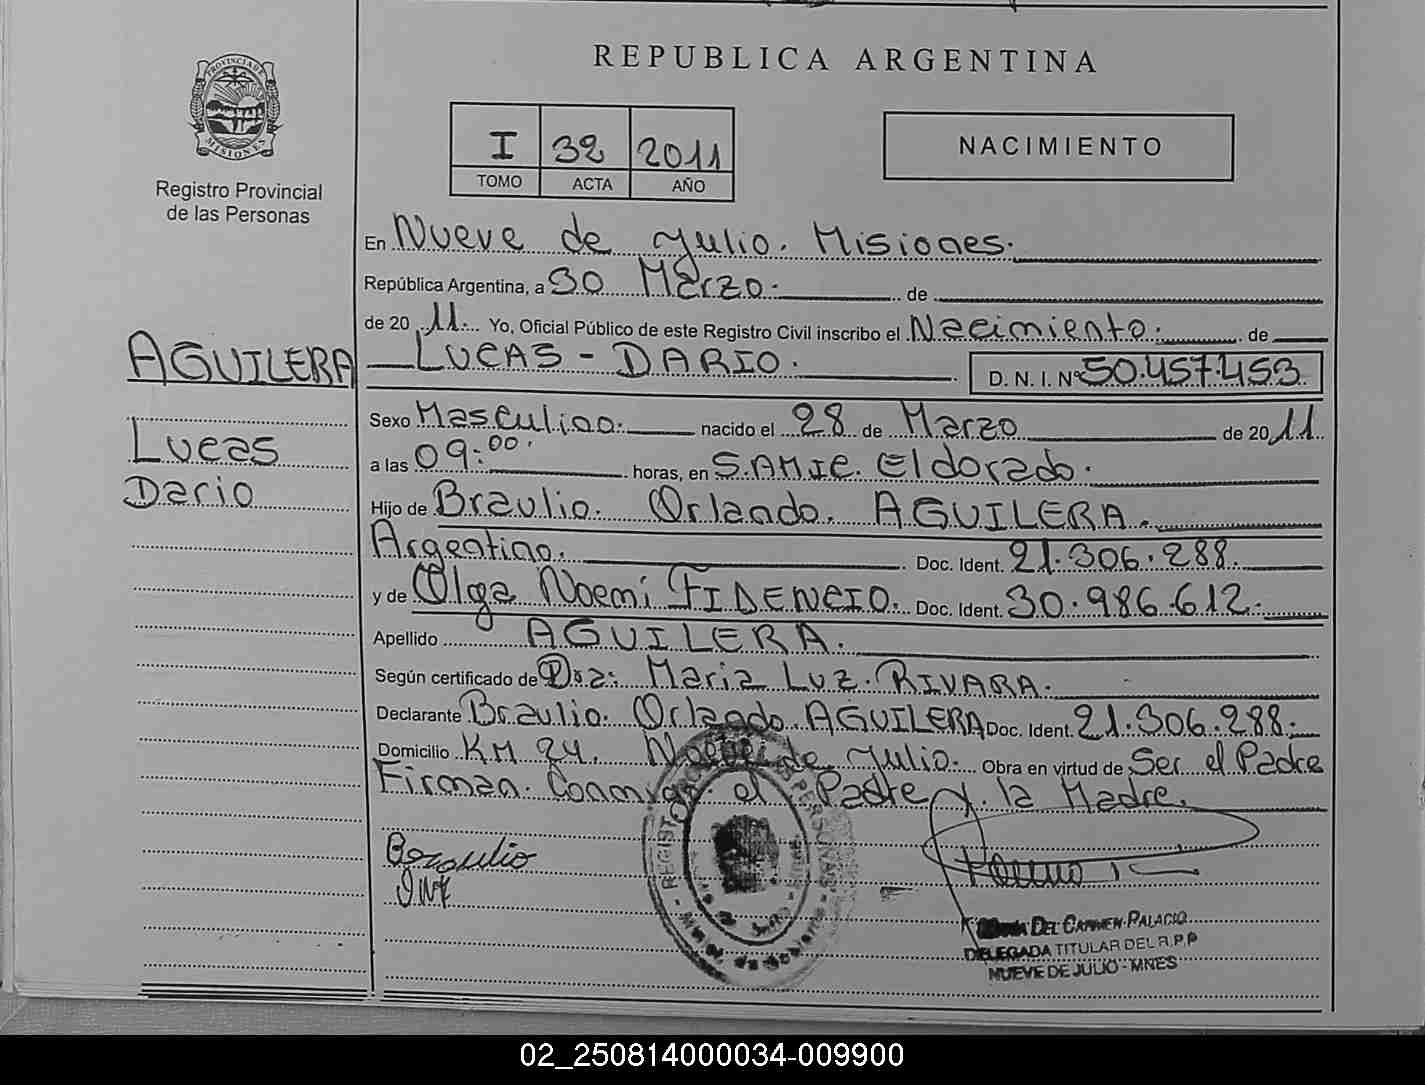 REPUBLICA ARGENTINA
PROVINCIA DE
MISIONES
Registro Provincial
de las Personas
I 32 2011
TOMO ACTA AÑO
NACIMIENTO
En Nueve de Julio. Misiones.
República Argentina, a 30 Marzo. de
de 20 11. Yo, Oficial Público de este Registro Civil inscribo el Nacimiento. de
AGUILERA
Lucas
Dario
LUCAS - DARIO.
D. N. I. Nº 50.457.453
Sexo Masculino. nacido el 28 de Marzo de 20 11
a las 09:00' horas, en S.AMIC. Eldorado.
Hijo de Braulio. Orlando. AGUILERA.
Argentino. Doc. Ident. 21.306.288.
y de Olga Noemi FIDENCIO. Doc. Ident. 30.986.612.
Apellido AGUILERA.
Según certificado de Dra: Maria Luz. RIVARA.
Declarante Braulio. Orlando. AGUILERA Doc. Ident. 21.306.288.
Domicilio KM 24. Nueve de Julio. Obra en virtud de Ser el Padre
Firman. Conmigo el Padre y la Madre.
Braulio
DEL CARMEN PALACIO
DELEGADA TITULAR DEL R.P.P
NUEVE DE JULIO - MNES
02_250814000034-009900